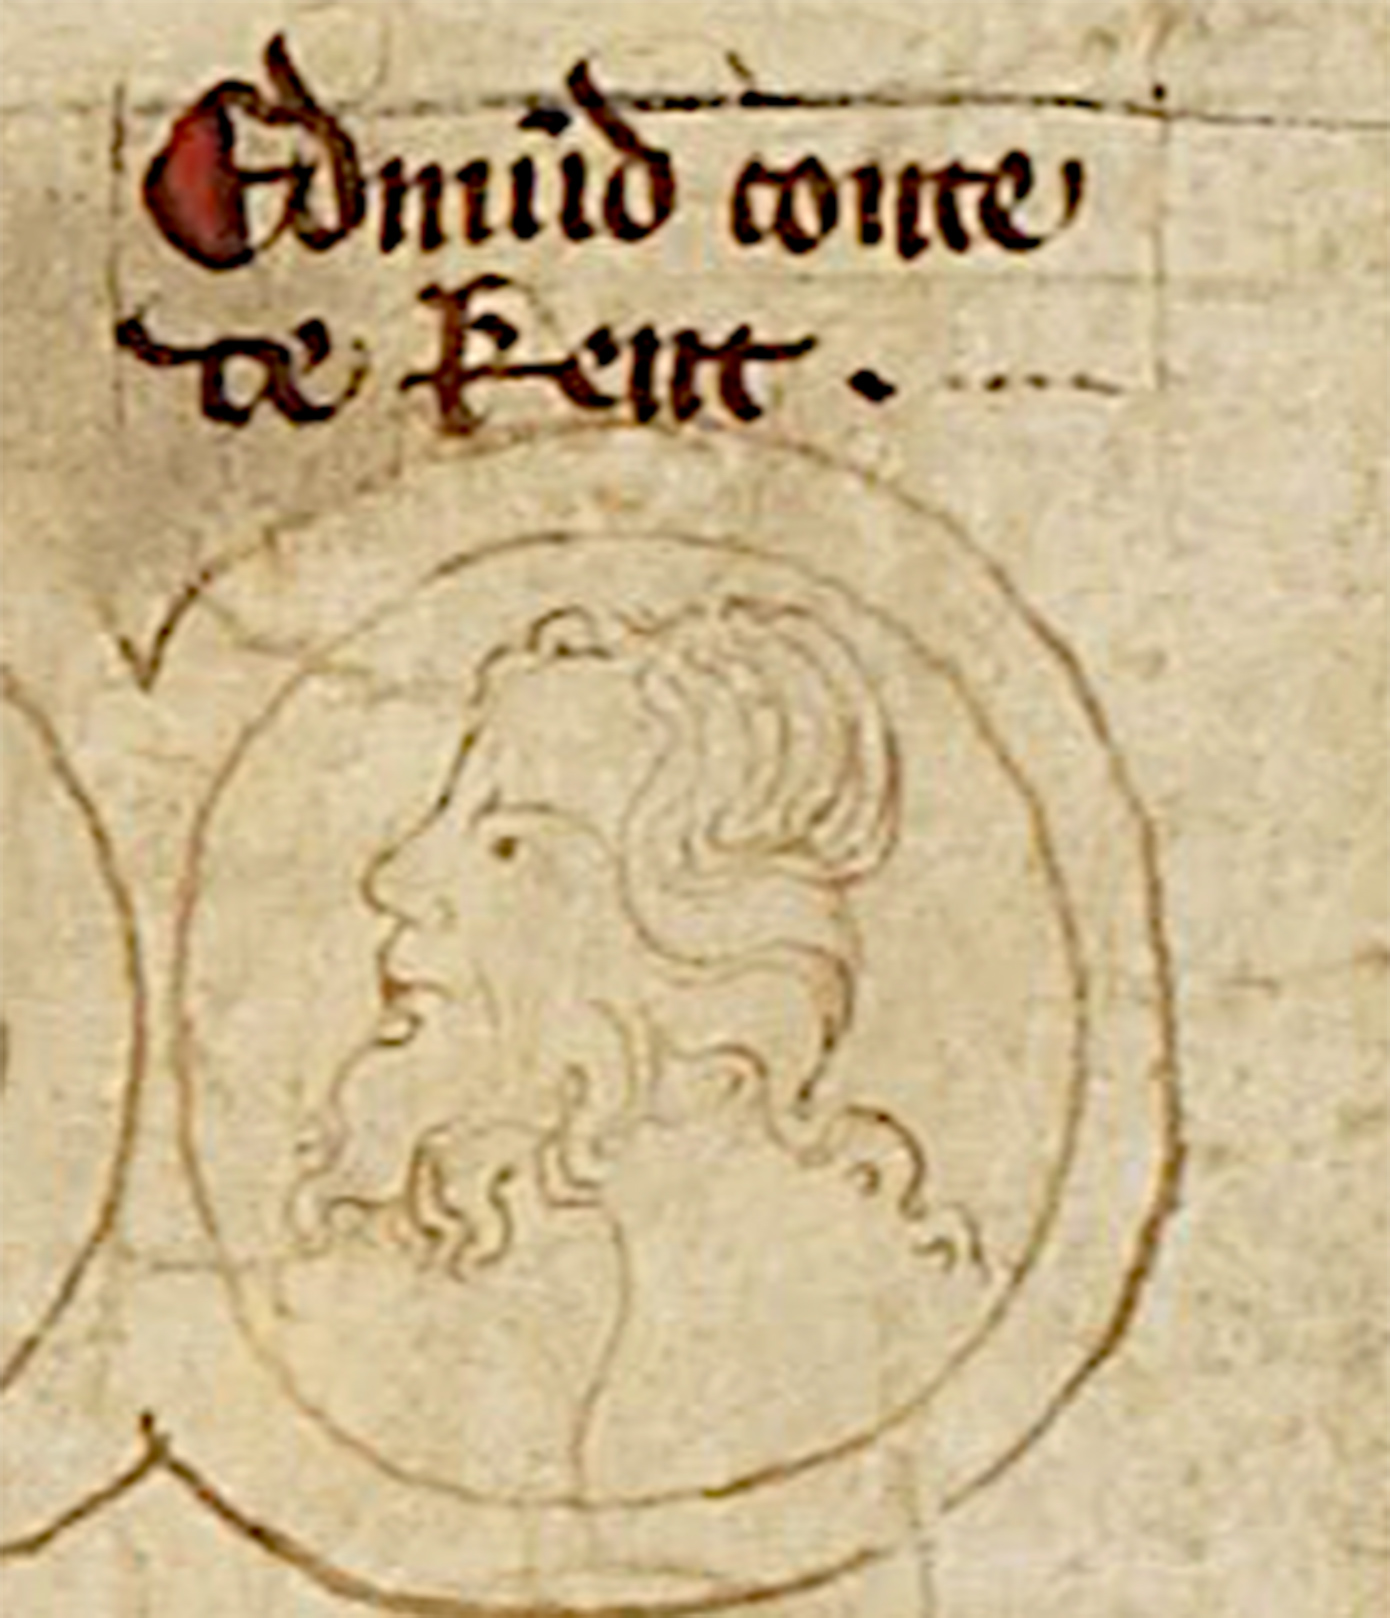 Edmūd conte
de kent .